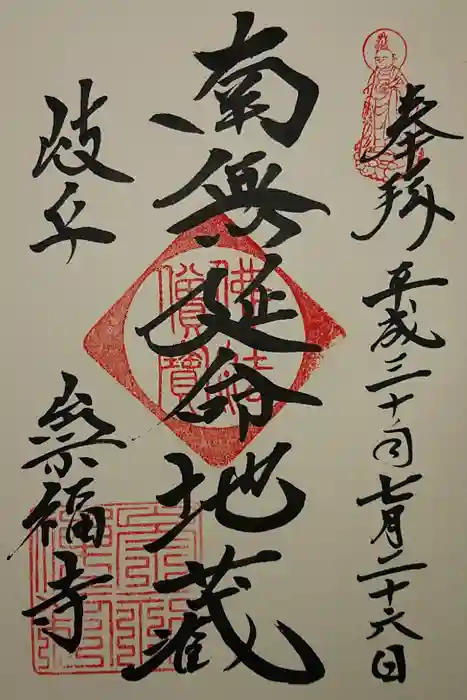 奉拝
平成三十年七月二十六日
南無延命地蔵
岐阜
崇福寺